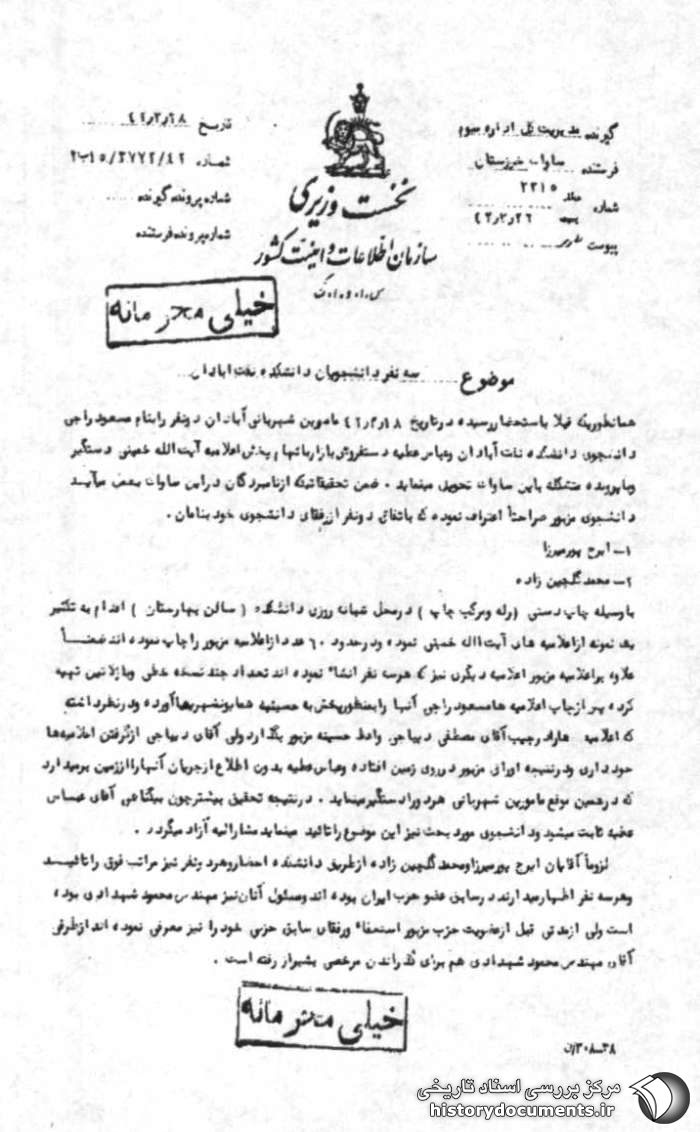 گیرنده مدیریت کل اداره سوم
فرستنده ساواک خوزستان
شماره ۲۳۱۵
پیوست
تاریخ ۴۲/۳/۲۸
شماره
شماره پرونده گیرنده
شماره پرونده فرستنده
نخست وزیری
سازمان اطلاعات و امنیت کشور
س.ا.و.ا.ک
خیلی محرمانه
موضوع سه نفر دانشجویان دانشکده نفت آبادان
همانطوریکه قبلا باستحضار رسیده در تاریخ ۴۲/۳/۱۸ مامورین شهربانی آبادان دو نفر را بنام مسعود راجی
دانشجوی دانشکده نفت آبادان و عباس عطیه دستفروش بازار باتهام پخش اعلامیه آیت الله خمینی دستگیر
و با پرونده متشکله باین ساواک تحویل مینماید . ضمن تحقیقاتیکه از نامبردگان در این ساواک بعمل میآید
دانشجوی مزبور صراحتاً اعتراف نموده که باتفاق دو نفر از رفقای دانشجوی خود بنامان .
۱ــ ایرج پورمیرزا
۲ــ محمد گلچین زاده
با وسیله چاپ دستی ( رله و مرکب چاپ ) در محل شبانه روزی دانشکده ( سالن بهارستان ) اقدام به تکثیر
یک نمونه از اعلامیه های آیت الله خمینی نموده و در حدود ۶۰ عدد از اعلامیه مزبور را چاپ نموده اند ضمناً
علاوه بر اعلامیه مزبور اعلامیه دیگری نیز که هر سه نفر انشاء نموده اند تعداد چند نسخه خطی و با پلاتین تهیه
کرده پس از چاپ اعلامیه ها مسعود راجی آنها را بمنظور پخش به حسینیه آورده و در نظر داشته
که اعلامیه ها را در جیب آقای مصطفی دیباجی واعظ حسینه مزبور بگذارد ولی آقای دیباجی از گرفتن اعلامیه ها
خودداری و در نتیجه اوراق مزبور در روی زمین افتاده و عباس عطیه بدون اطلاع از جریان آنها را از زمین برمیدارد
که در همین موقع مامورین شهربانی هر دو را دستگیر مینماید . در نتیجه تحقیق بیشتر چون بیگناهی آقای عباس
عطیه ثابت میشود و دانشجوی مورد بحث نیز این موضوع را تائید مینماید مشارالیه آزاد میگردد .
لزوماً آقایان ایرج پورمیرزا و محمد گلچین زاده از طریق دانشکده احضار و هر دو نفر نیز مراتب فوق را تائید
و هر سه نفر اظهار میدارند در سابق عضو حزب ایران بوده اند و مسئول آنان نیز مهندس محمود شهدادی بوده
است ولی از مدتی قبل از عضویت حزب مزبور استعفاء و رفقای سابق حزبی خود را نیز معرفی نموده اند از طرفی
آقای مهندس محمود شهدادی هم برای گذراندن مرخصی بشیراز رفته است .
خیلی محرمانه
مرکز بررسی اسناد تاریخی
historydocuments.ir